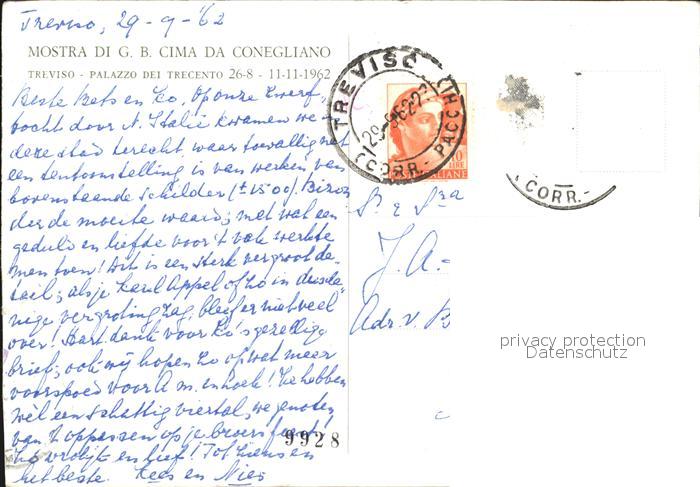 Treviso, 29-9-'62
MOSTRA DI G. B. CIMA DA CONEGLIANO
TREVISO - PALAZZO DEI TRECENTO 26-8 - 11-11-1962
Beste Bets en Ko, Op onze zwerf-
tocht door N. Italië kwamen we in
deze stad terecht waar toevallig net
een tentoonstelling is van werken van
bovenstaande schilder (± 1500). Bizon-
der de moeite waard; met wat een
geduld en liefde voor 't vak werkte
men toen! Dit is een sterk vergroot de-
tail; als je Karel Appel of zo in dusda-
nige vergroting zag, bleef er niet veel
over! Hart. dank voor Ko's gezellige
brief; ook wij hopen zo op wat meer
voorspoed voor A.m. en Ze hebben
wèl een schattig viertal, we genoten
van 't oppassen op je broers feest!
Zo vrolijk en lief! Tot ziens en
het beste. Kees en Nies
9928
TREVISO
29-9-62
CORR.- PACCHI
LIRE
ITALIANE
CORR.-
Sr e Sra
J. A.
Adr. v. B
privacy protection
Datenschutz